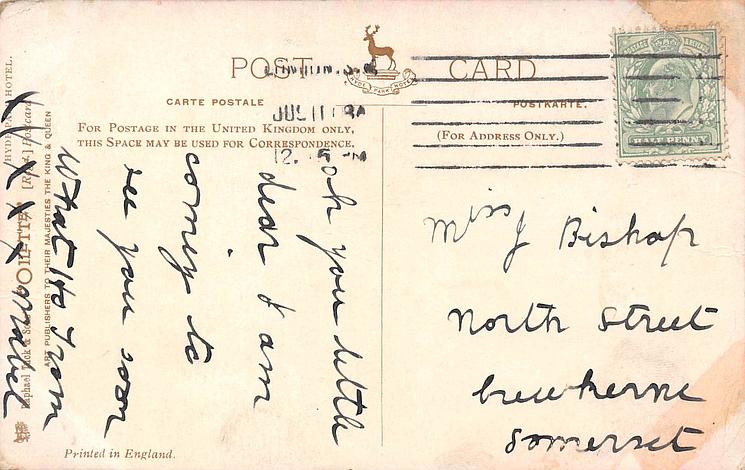 POST CARD
HYDE PARK HOTEL
CARTE POSTALE
POSTKARTE.
FOR POSTAGE IN THE UNITED KINGDOM ONLY,
THIS SPACE MAY BE USED FOR CORRESPONDENCE.
(FOR ADDRESS ONLY.)
LONDON. S.W.
JUL 11
12. 15 PM
HALF PENNY
oh you little
dear I am
coming to
see you soon
What Ho from
X X X X
Miss J Bishop
North Street
Crewkerne
Somerset
HYDE PARK HOTEL.
Raphael Tuck & Sons "OILETTE" [Regd.] Postcard
ART PUBLISHERS TO THEIR MAJESTIES THE KING & QUEEN
Printed in England.